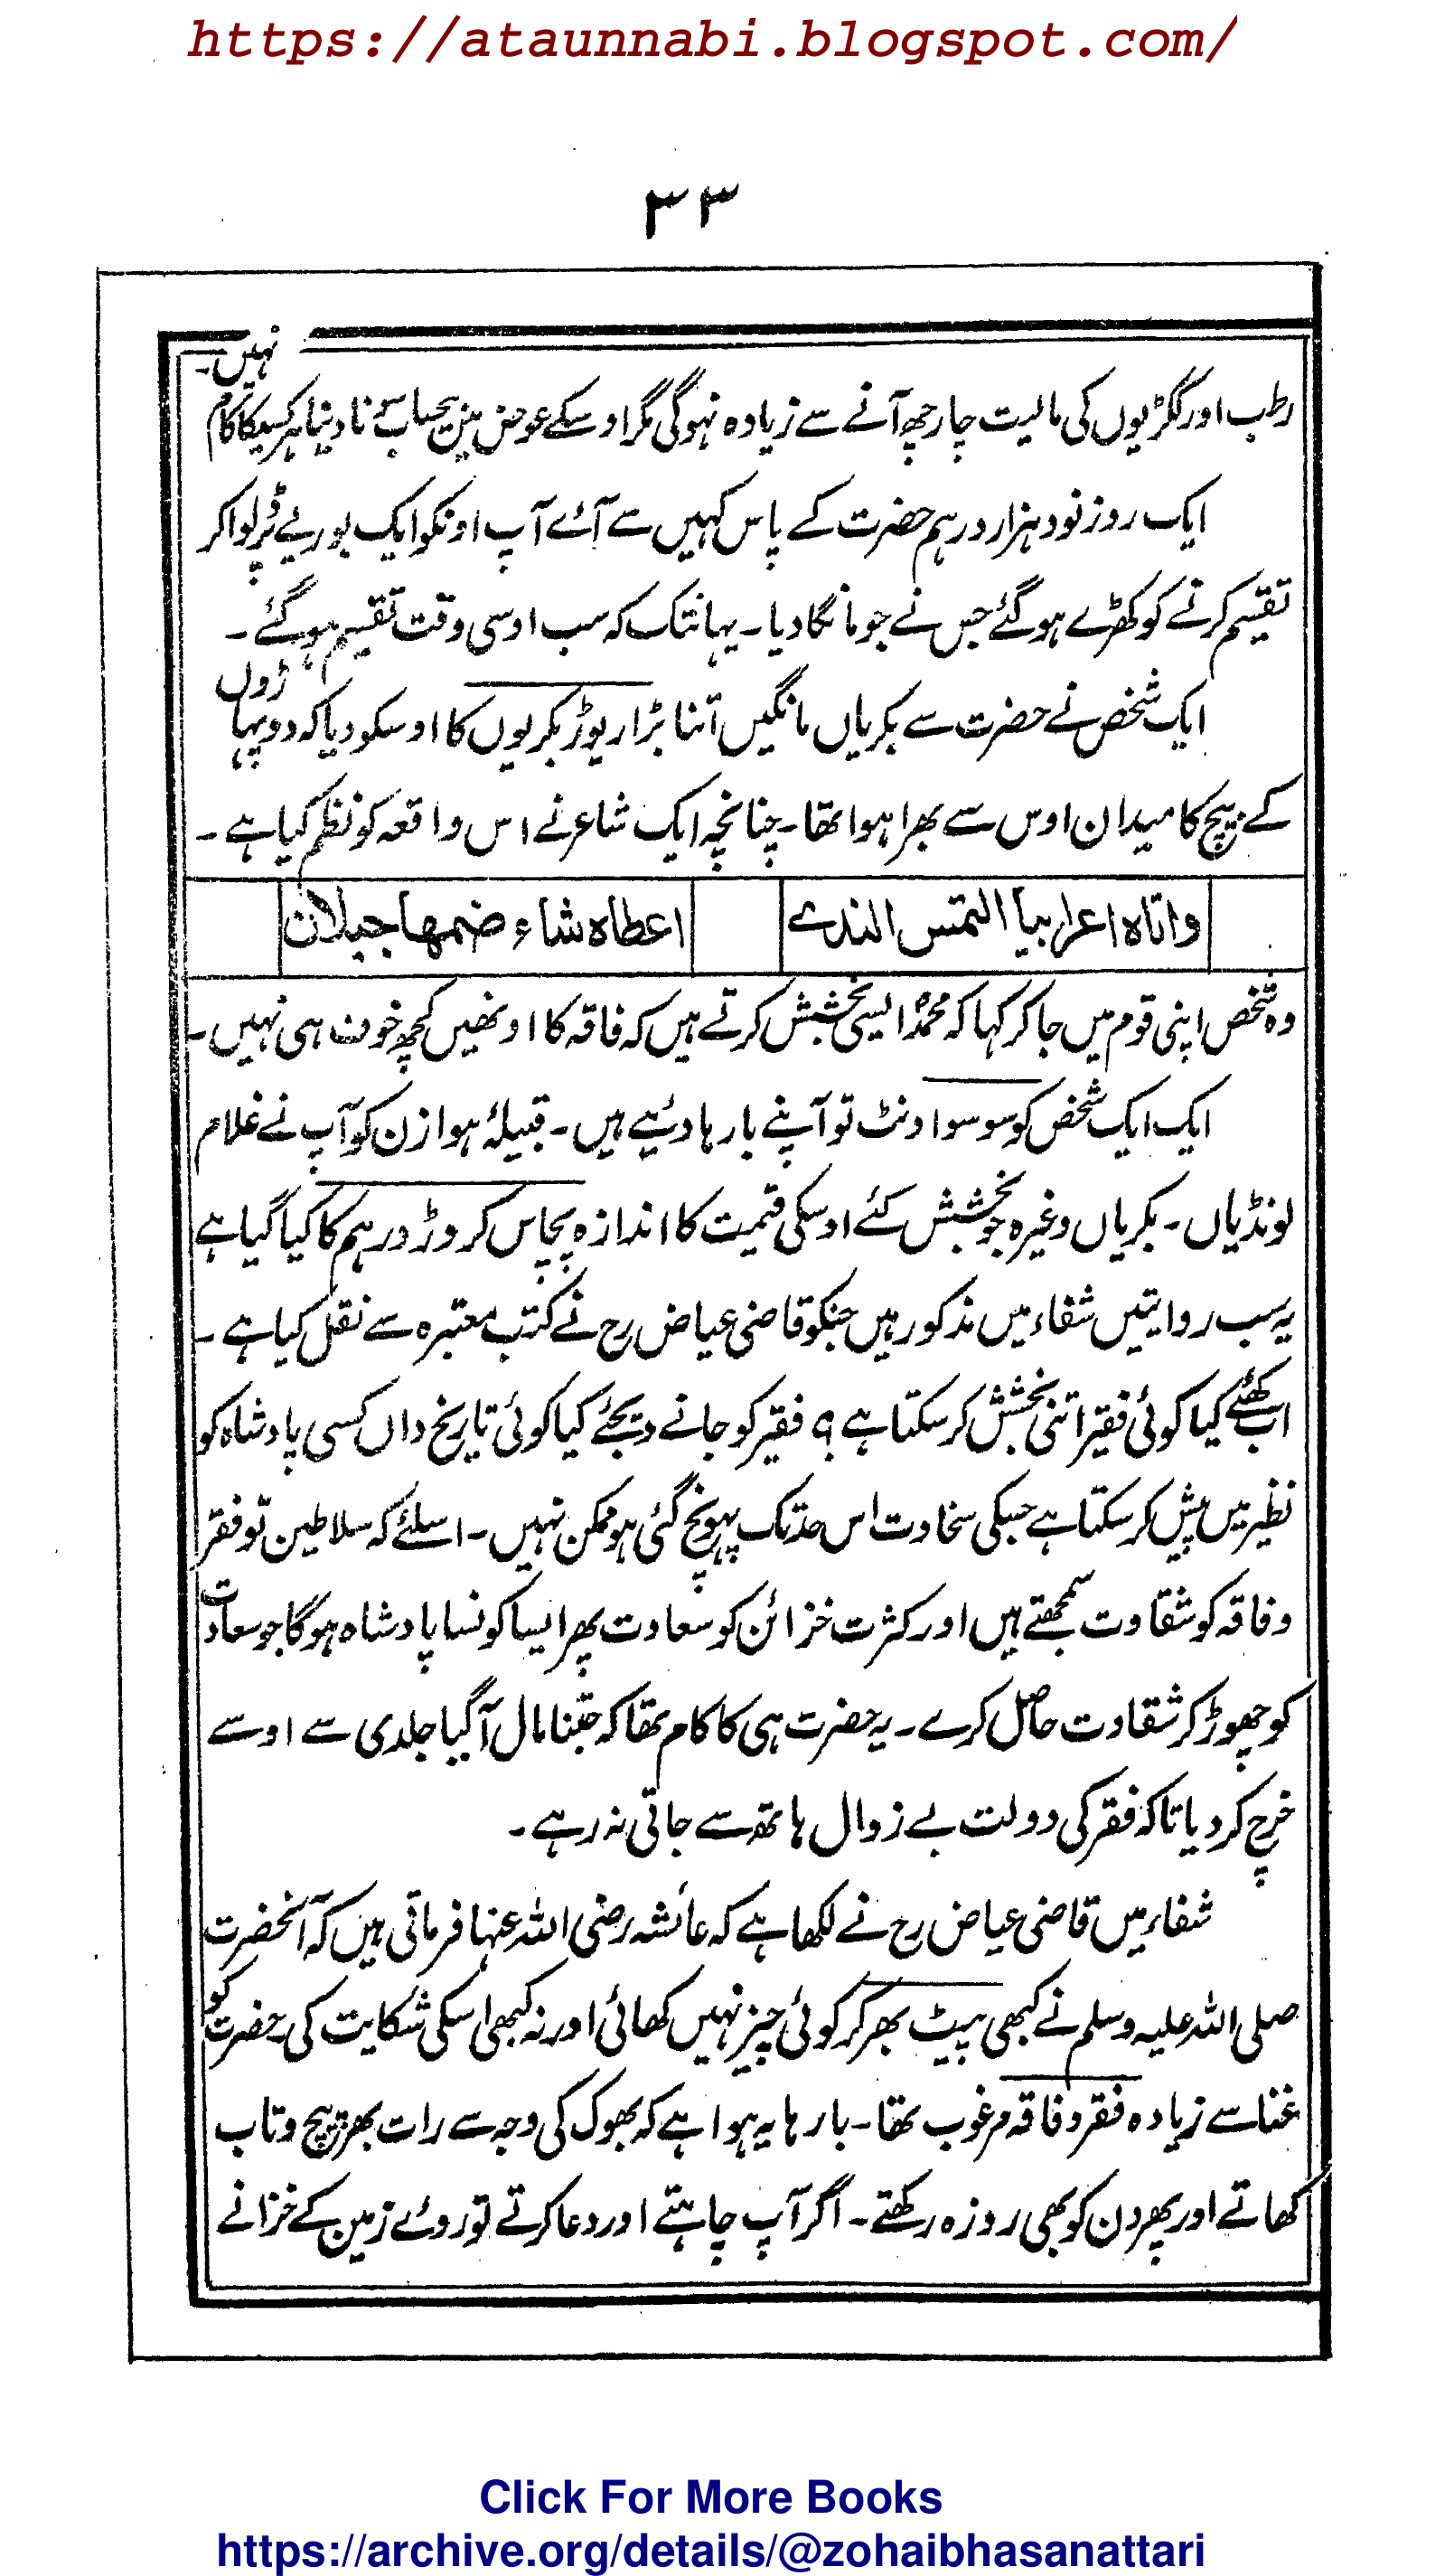 https://ataunnabi.blogspot.com/
۳۳
رطب اور ککڑیوں کی مالیت چار چھ آنے سے زیادہ نہوگی مگر اوسکے عوض میں بیحساب سونا دینا ہر کسیکا کام نہیں۔
ایک روز نود ہزار درہم حضرت کے پاس کہیں سے آئے آپ اونکو ایک بوریے پر ڈلواکر
تقسیم کرنے کو کھڑے ہوگئے جس نے جو مانگا دیا۔ یہانتک کہ سب اوسی وقت تقسیم ہوگئے۔
ایک شخص نے حضرت سے بکریاں مانگیں اتنا بڑا ریوڑ بکریوں کا اوسکو دیا کہ دو پہاڑوں
کے بیچ کا میدان اوس سے بھرا ہوا تھا۔ چنانچہ ایک شاعر نے اس واقعہ کو نظم کیا ہے۔
واتاہ اعرابیا التمس الندے اعطاہ شاء ضمھا جبلان
وہ شخص اپنی قوم میں جاکر کہا کہ محمدؐ ایسی بخشش کرتے ہیں کہ فاقہ کا اونھیں کچھ خوف ہی نہیں۔
ایک ایک شخص کو سو سو اونٹ تو آپنے بارہا دئیے ہیں۔ قبیلۂ ہوازن کو آپ نے غلام
لونڈیاں۔ بکریاں وغیرہ جو بخشش کئے اوسکی قیمت کا اندازہ پچاس کروڑ درہم کا کیا گیا ہے
یہ سب روایتیں شفاء میں مذکور ہیں جنکو قاضی عیاض رح نے کتب معتبرہ سے نقل کیا ہے۔
اب کھئے کیا کوئی فقیر اتنی بخشش کرسکتا ہے؟ فقیر کو جانے دیجئے کیا کوئی تاریخ داں کسی پادشاہ کو
نظیر میں پیش کرسکتا ہے جسکی سخاوت اس حد تک پہونچ گئی ہو ممکن نہیں۔ اسلئے کہ سلاطین تو فقر
و فاقہ کو شقاوت سمجھتے ہیں اور کثرت خزائن کو سعادت پھر ایسا کونسا پادشاہ ہوگا جو سعادت
کو چھوڑ کر شقاوت حاصل کرے۔ یہ حضرت ہی کا کام تھا کہ جتنا مال آگیا جلدی سے اوسے
خرچ کردیا تاکہ فقر کی دولت بے زوال ہاتھ سے جاتی نہ رہے۔
شفاء میں قاضی عیاض رح نے لکھا ہے کہ عائشہ رضی اللہ عنہا فرماتی ہیں کہ آنحضرت
صلی اللہ علیہ وسلم نے کبھی پیٹ بھر کر کوئی چیز نہیں کھائی اور نہ کبھی اسکی شکایت کی حضرت کو
غنا سے زیادہ فقر و فاقہ مرغوب تھا۔ بارہا یہ ہوا ہے کہ بھوک کی وجہ سے رات بھر پیچ و تاب
کھاتے اور پھر دن کو بھی روزہ رکھتے۔ اگر آپ چاہتے اور دعا کرتے تو روے زمین کے خزانے
Click For More Books
https://archive.org/details/@zohaibhasanattari